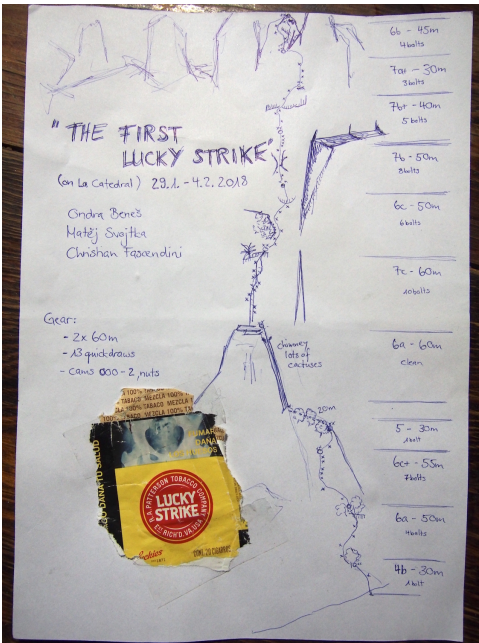 "THE FIRST
LUCKY STRIKE"
(on La Catedral) 29.1. - 4.2. 2018
Ondra Beneš
Matěj Svojtka
Christian Fascendini
Gear:
- 2x 60m
- 13 quickdraws
- cams 000 - 2, nuts
chimney
lots of
cactuses
20m
6b - 45m
4 bolts
7a+ - 30m
3 bolts
7b+ - 40m
5 bolts
7b - 50m
8 bolts
6c - 50m
6 bolts
7c - 60m
10 bolts
6a - 60m
clean
5 - 30m
1 bolt
6c+ - 55m
7 bolts
6a - 50m
4 bolts
4b - 30m
1 bolt
100% TABACO
TABACO MEZCLA 100% T
LA 100% TABACO MEZCLA
DANA TU SALUD
FUMAR
DANA
R.A. PATTERSON TOBACCO COMPANY
LUCKY
STRIKE
EST. RICH'D, VA, USA
Luckies
CONT. 20 CIGARROS